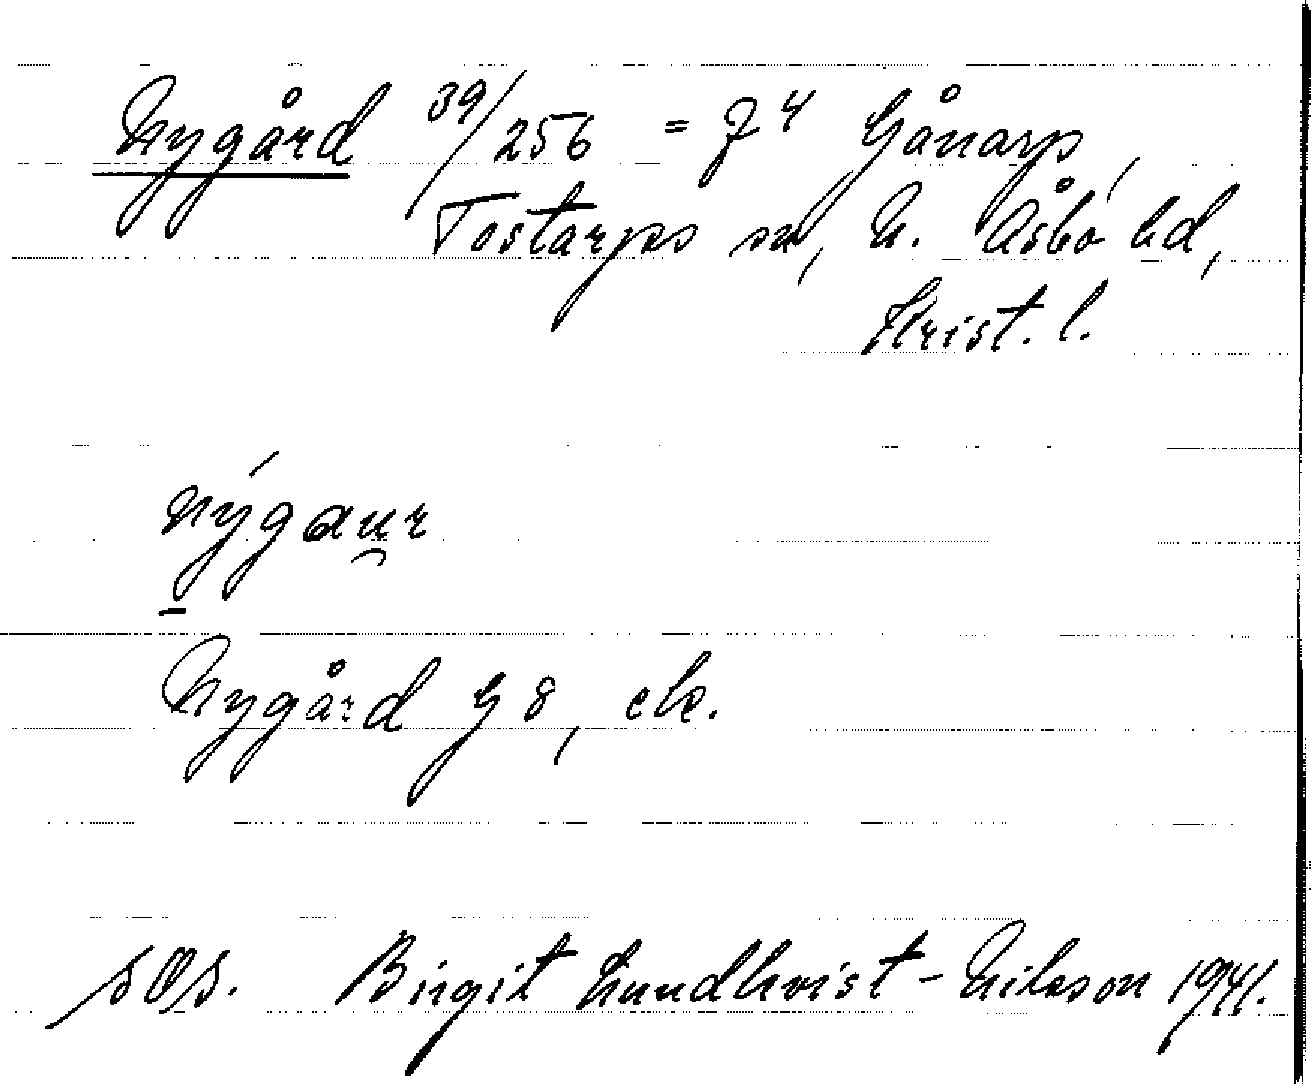 Nygård 39/256 = J 4 Gånarp,
Tostarps sn, N. Åsbo hd,
Krist. l.
nýgau̯r
Nygård G 8, ek.
SOS. Birgit Lundkvist-Nilsson 1941.